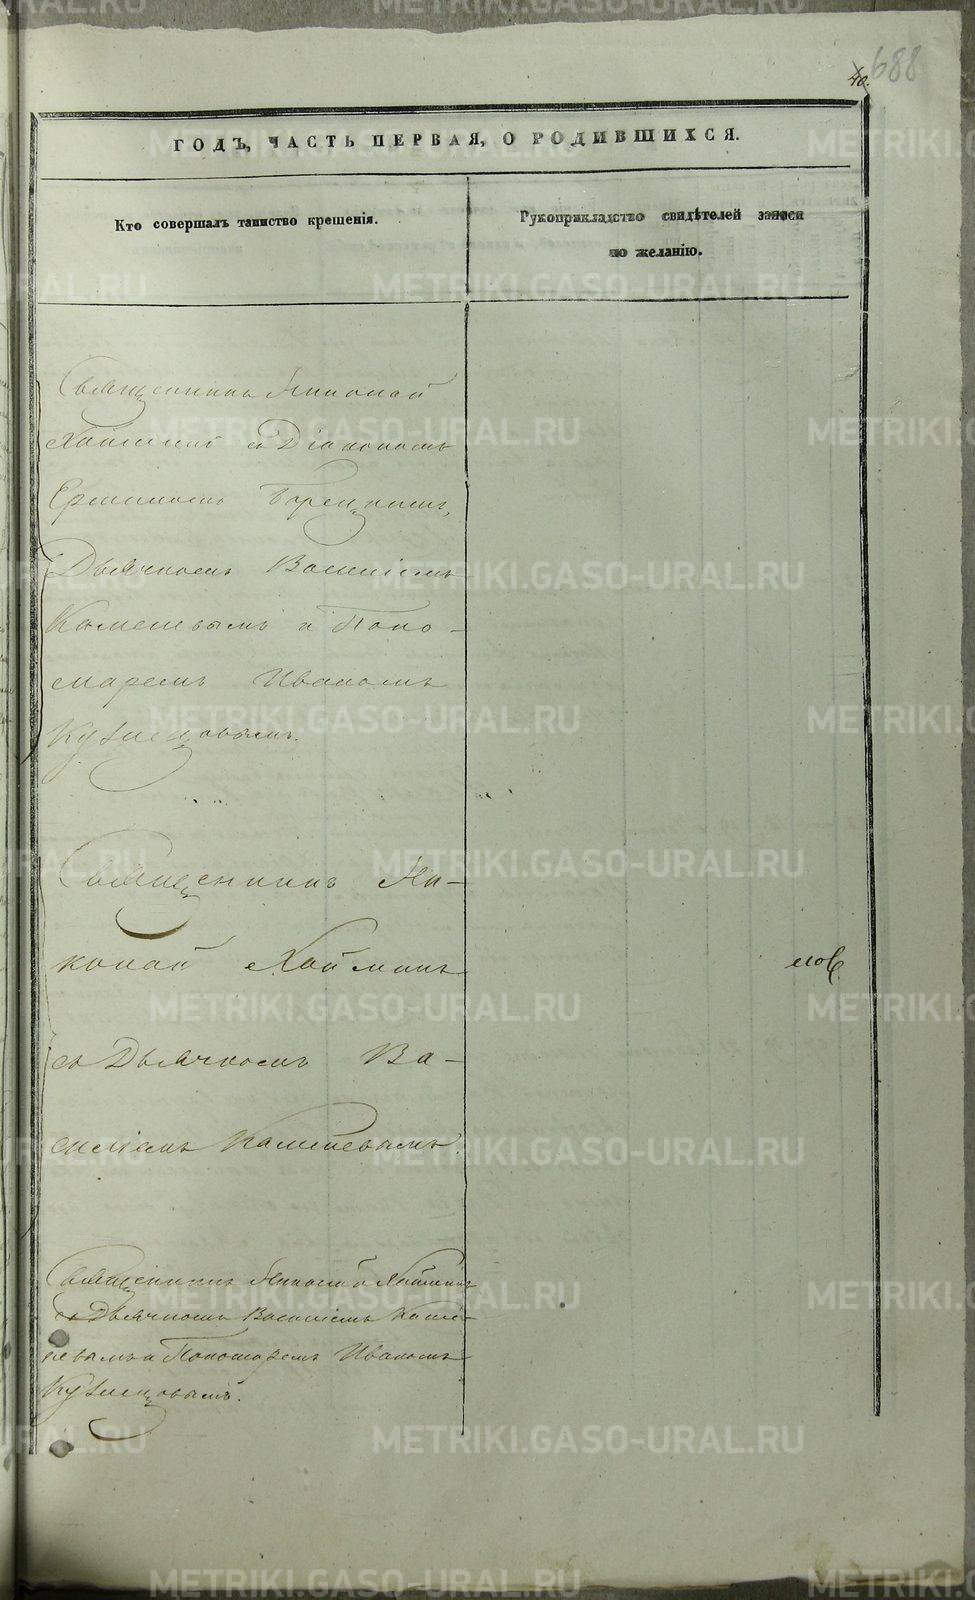 40. 688
ГОДЪ, ЧАСТЬ ПЕРВАЯ, О РОДИВШИХСЯ.
Кто совершалъ таинство крещенія.
Рукоприкладство свидѣтелей записи
по желанію.
Священникъ Николай
съ Діакономъ
Ермиломъ
Дьячкомъ Василіемъ
Каменевымъ и Поно-
маремъ Иваномъ
Кузнецовымъ.
Священникъ Ни-
колай
съ Дьячкомъ Ва-
силіемъ Каменевымъ.
лов
Священникъ Николай
съ Дьячкомъ Василіемъ Каме-
невымъ и Пономаремъ Иваномъ
Кузнецовымъ.
METRIKI.GASO-URAL.RU